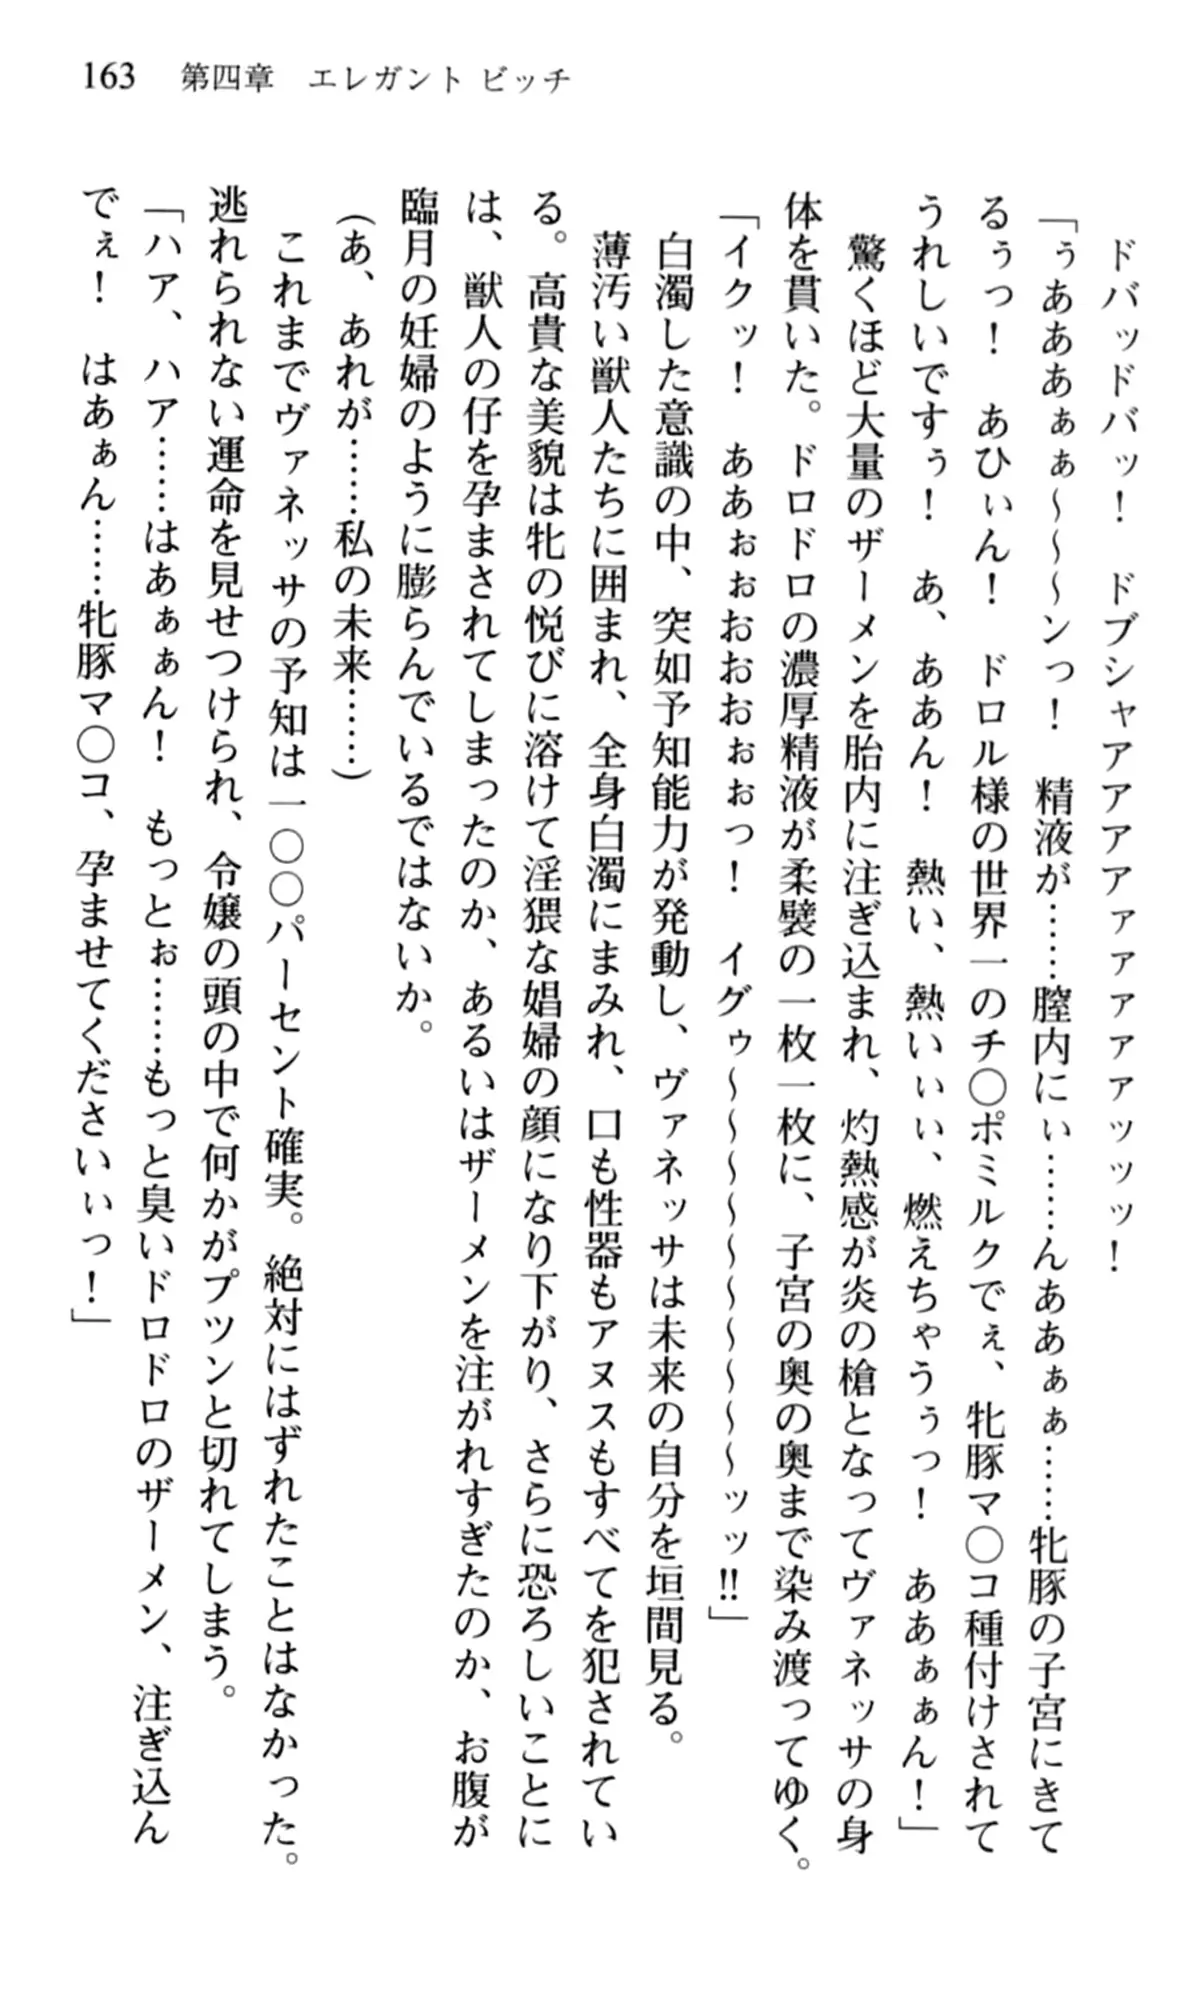 163　第四章　エレガント ビッチ
ドバッドバッ！　ドブシャアアアアァァァァァッッッ！
「ぅあああぁぁ～～～ンっ！　精液が……膣内にぃ……んああぁぁ……牝豚の子宮にきて
るぅっ！　あひぃん！　ドロル様の世界一のチ〇ポミルクでぇ、牝豚マ〇コ種付けされて
うれしいですぅ！　あ、ああん！　熱い、熱いぃぃ、燃えちゃうぅっ！　ああぁぁん！」
驚くほど大量のザーメンを胎内に注ぎ込まれ、灼熱感が炎の槍となってヴァネッサの身
体を貫いた。ドロドロの濃厚精液が柔襞の一枚一枚に、子宮の奥の奥まで染み渡ってゆく。
「イクッ！　ああぉぉおおおぉぉっ！　イグゥ～～～～～～～～～～ッッ‼」
白濁した意識の中、突如予知能力が発動し、ヴァネッサは未来の自分を垣間見る。
薄汚い獣人たちに囲まれ、全身白濁にまみれ、口も性器もアヌスもすべてを犯されてい
る。高貴な美貌は牝の悦びに溶けて淫猥な娼婦の顔になり下がり、さらに恐ろしいことに
は、獣人の仔を孕まされてしまったのか、あるいはザーメンを注がれすぎたのか、お腹が
臨月の妊婦のように膨らんでいるではないか。
（あ、あれが……私の未来……）
これまでヴァネッサの予知は一〇〇パーセント確実。絶対にはずれたことはなかった。
逃れられない運命を見せつけられ、令嬢の頭の中で何かがプツンと切れてしまう。
「ハア、ハア……はあぁぁん！　もっとぉ……もっと臭いドロドロのザーメン、注ぎ込ん
でぇ！　はあぁん……牝豚マ〇コ、孕ませてくださいぃっ！」